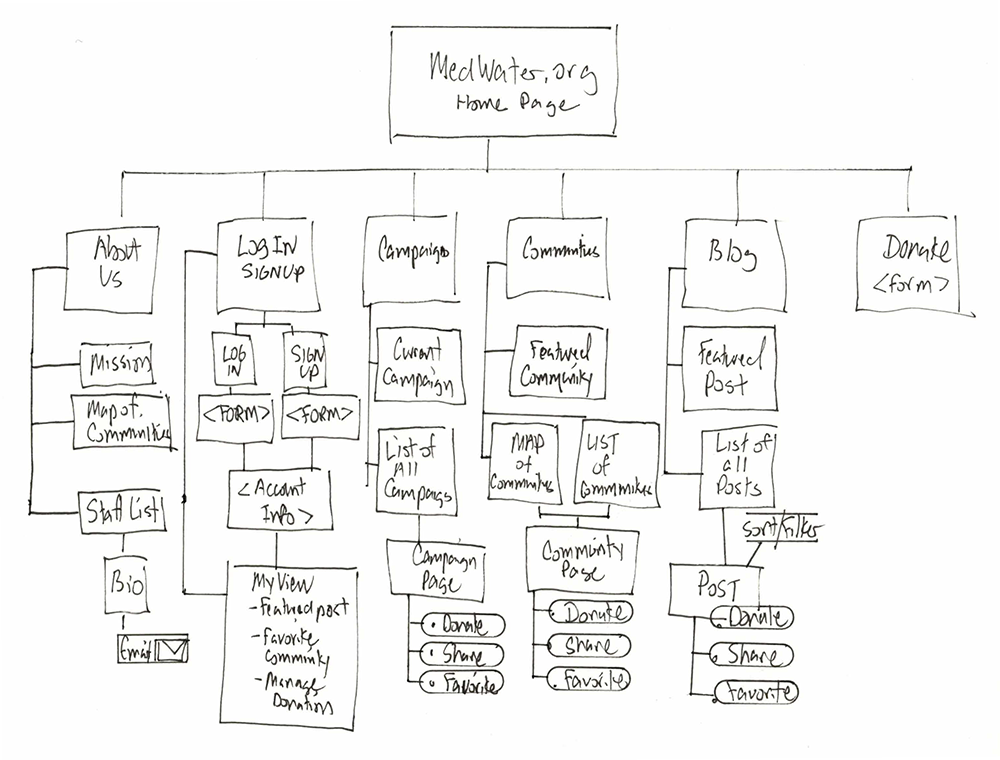 MedWater.org
Home Page
About
Us
Mission
Map of
Communities
Staff List
Bio
Email
LOG IN
SIGNUP
LOG
IN
SIGN
UP
<FORM>
<FORM>
<Account
Info>
My View
- Featured post
- Favorite
Community
- Manage
Donations
Campaigns
Current
Campaign
List of
All
Campaigns
Campaign
Page
Donate
Share
Favorite
Communities
Featured
Community
MAP
of
Communities
LIST
of
Communities
Community
Page
Donate
Share
Favorite
Blog
Featured
Post
List of
all
Posts
Sort/Filter
POST
Donate
Share
Favorite
Donate
<form>